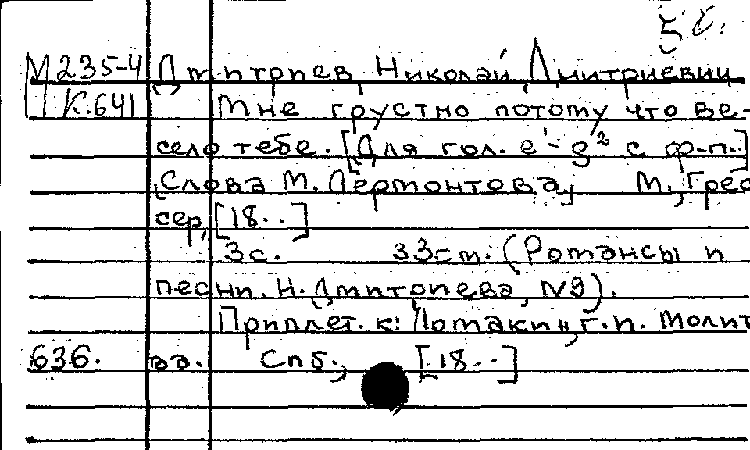 5 г.
М 235-4 Дмитриев, Николай Дмитриевич
К.641 Мне грустно потому что ве-
село тебе. [Для гол. e¹-g² с ф-п.]
(Слова М. Лермонтова) М., Грес
сер, [18..]
3с. 33см. (Романсы и
песни. Н. Дмитриева, №9).
Приплет. к: Потакин, г.п. Молит
636. ва. Спб., [18..]